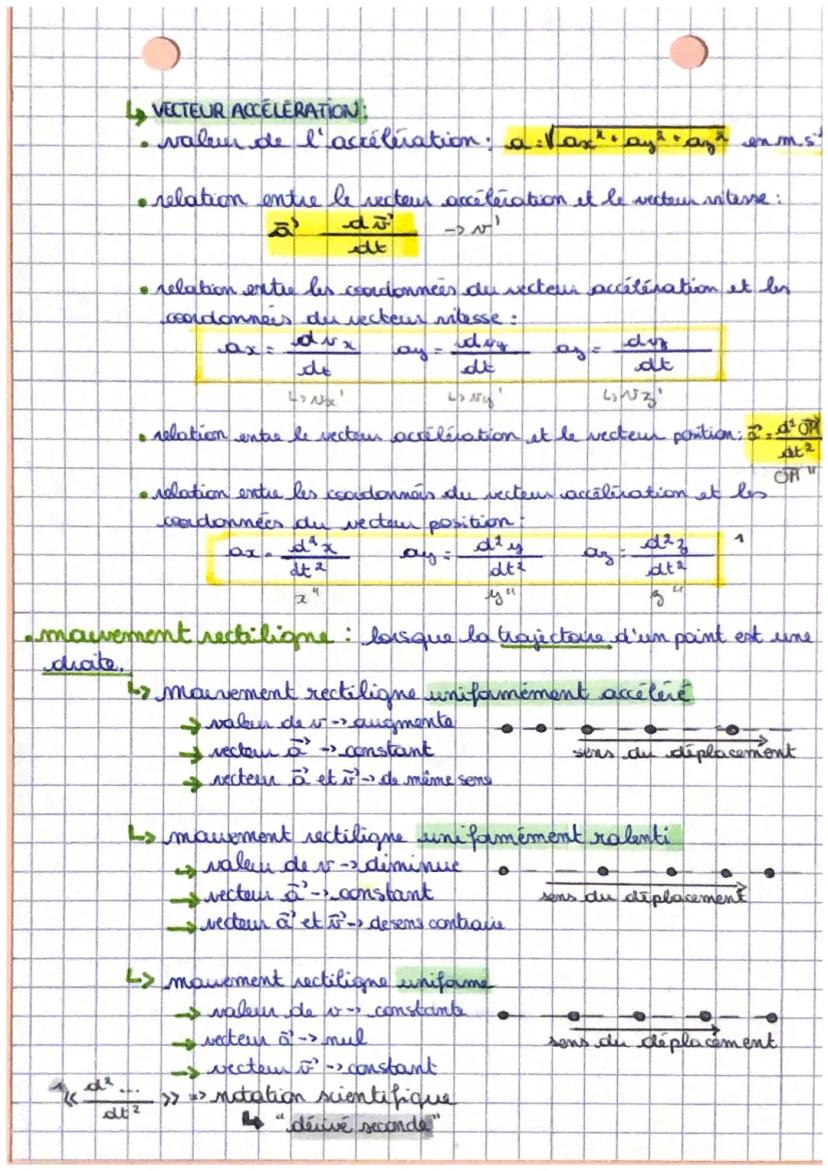 ↳ VECTEUR ACCÉLÉRATION:
• valeur de l'accélération: a = √ax² + ay² + az² en m.s⁻
• relation entre le vecteur accélération et le vecteur vitesse:
a⃗ dv⃗/dt -> v'
• relation entre les coordonnées du vecteur accélération et les
coordonnées du vecteur vitesse:
ax = dvx/dt ay = dvy/dt az = dvz/dt
↳ vx' ↳ vy' ↳ vz'
• relation entre le vecteur accélération et le vecteur position: a⃗ = d²OM⃗/dt²
OM"
• relation entre les coordonnées du vecteur accélération et les
coordonnées du vecteur position:
ax = d²x/dt² ay = d²y/dt² az = d²z/dt² ¹
x" y" z"
• mouvement rectiligne: lorsque la trajectoire d'un point est une
droite.
↳ mouvement rectiligne uniformément accéléré
→ valeur de v -> augmente
→ vecteur a⃗ -> constant
sens du déplacement
→ vecteur a⃗ et v⃗ -> de même sens
↳ mouvement rectiligne uniformément ralenti
→ valeur de v -> diminue
→ vecteur a⃗ -> constant
sens du déplacement
→ vecteur a⃗ et v⃗ -> de sens contraire
↳ mouvement rectiligne uniforme
→ valeur de v -> constante
→ vecteur a⃗ -> nul
sens du déplacement
→ vecteur v⃗ -> constant
¹ « d².../dt² » => notation scientifique
↳ "dérivé seconde"